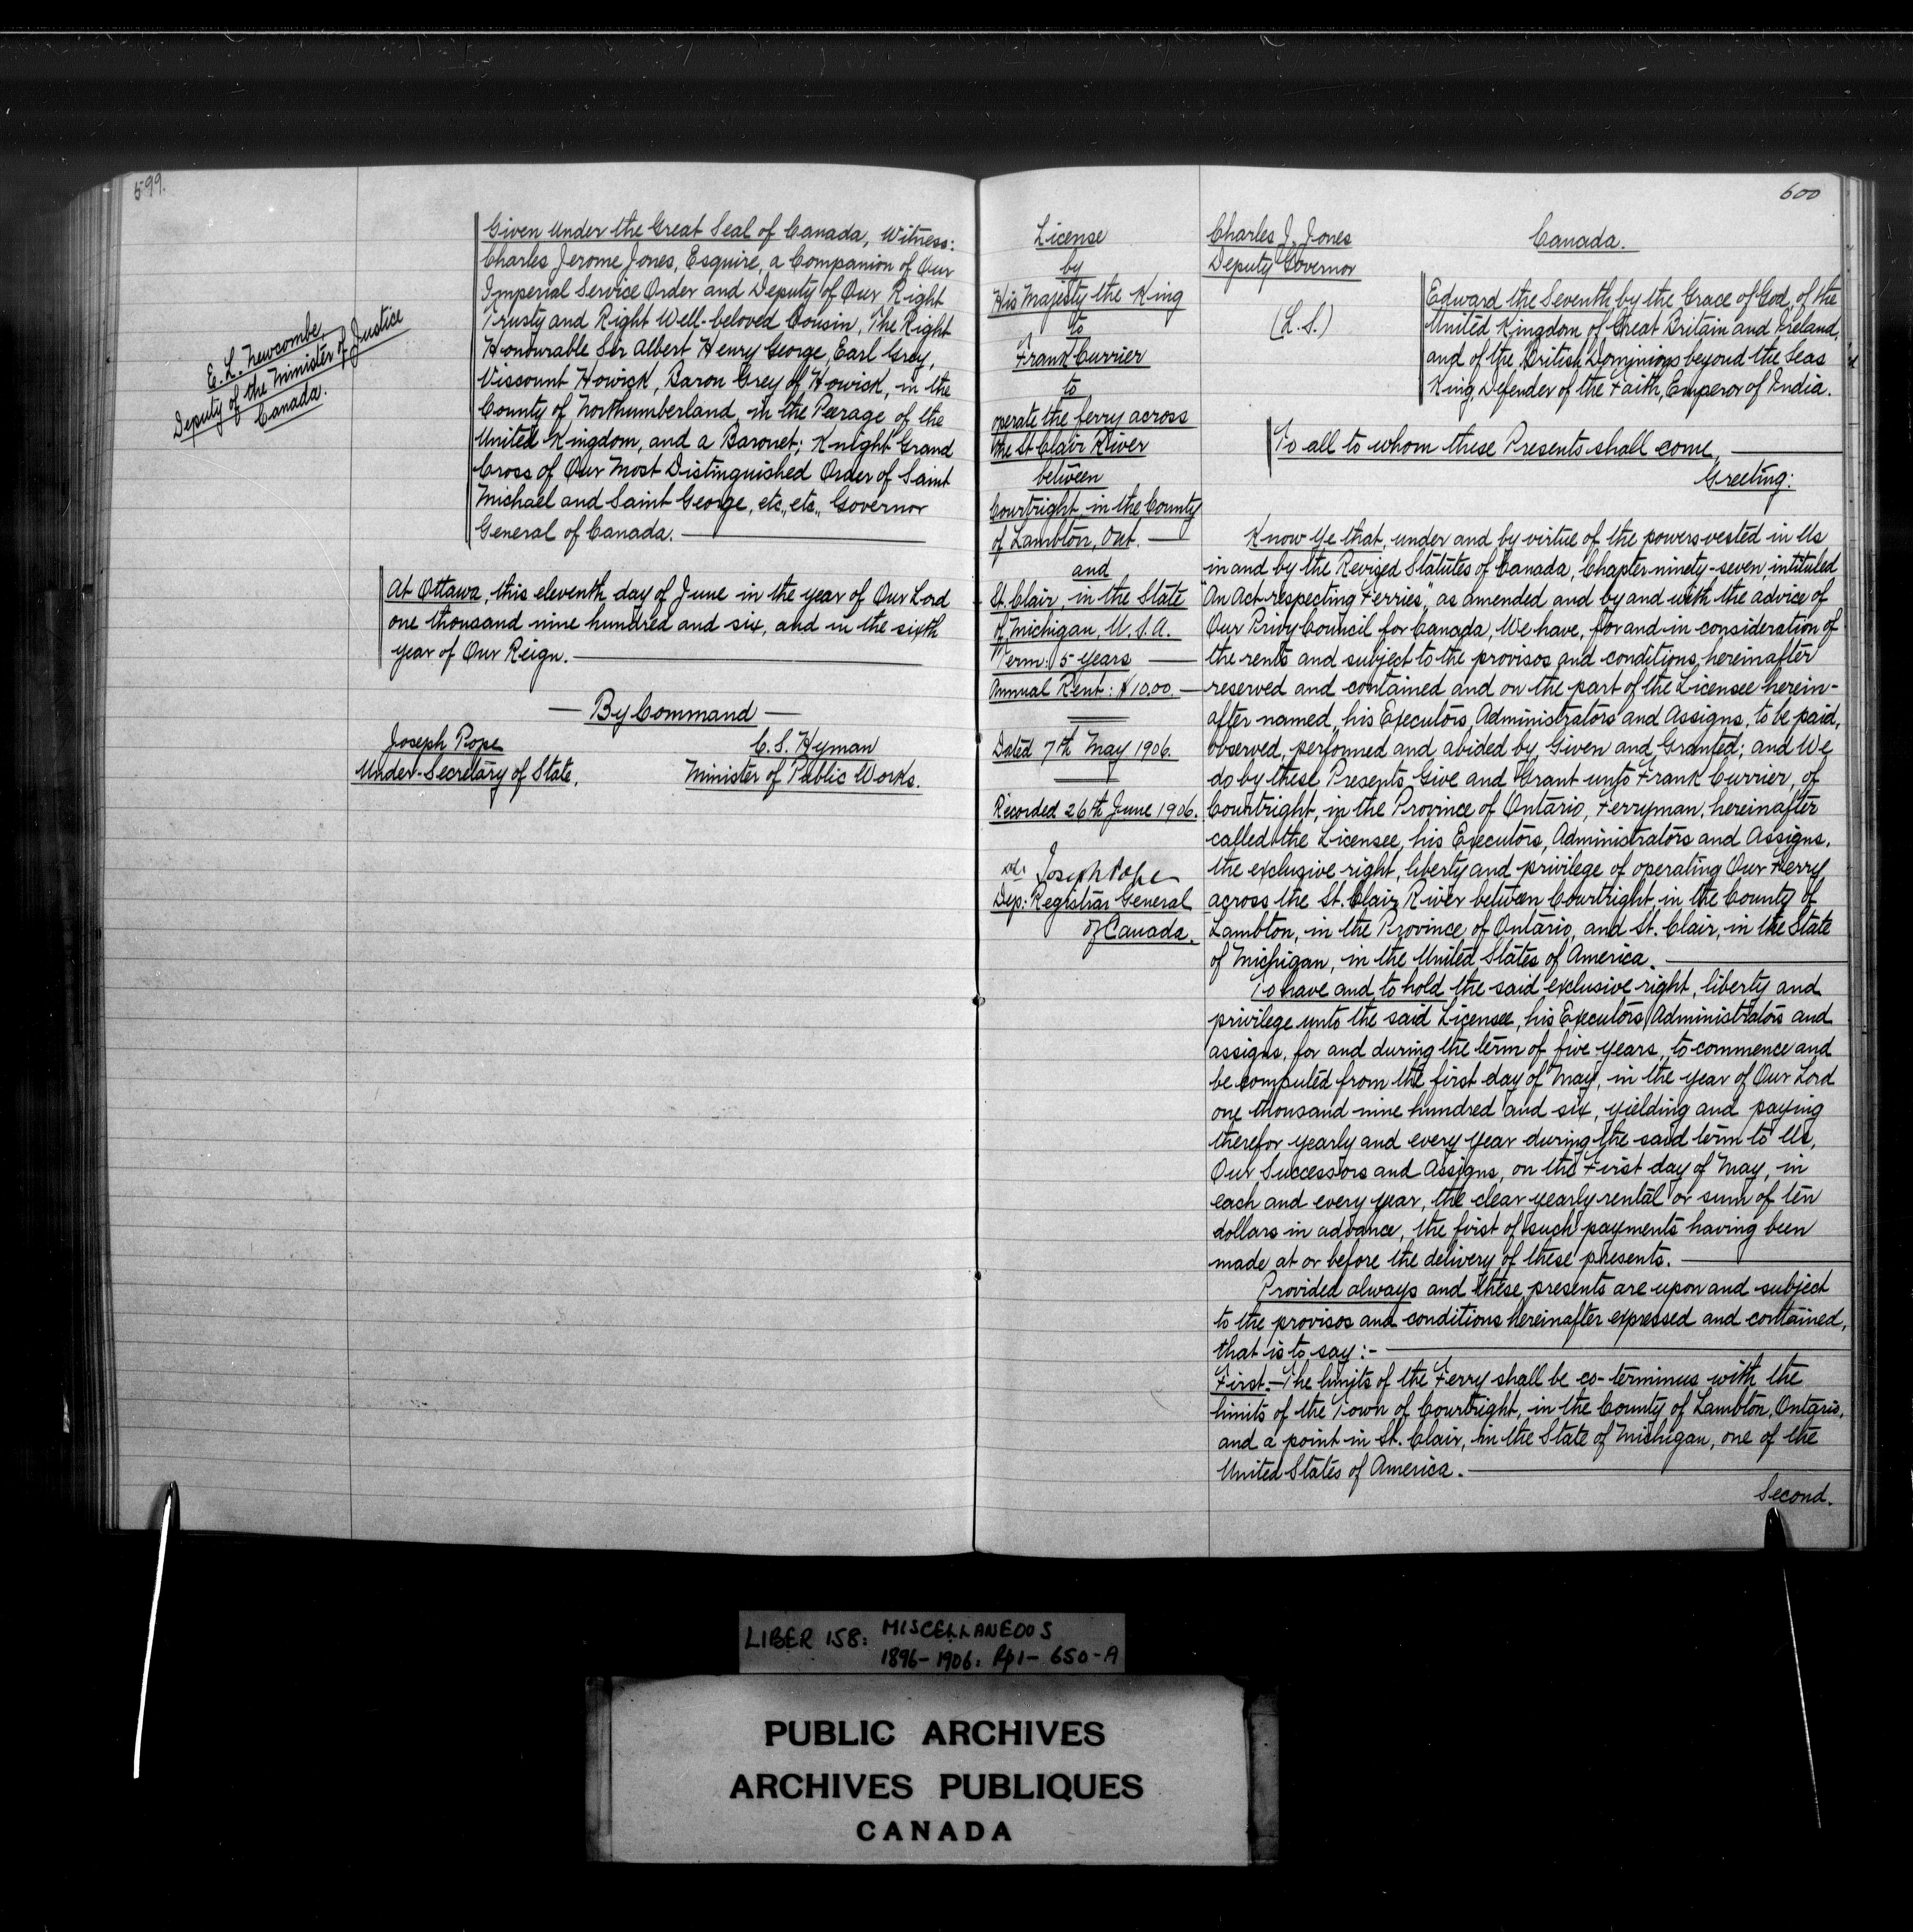 599.
E. L. Newcombe,
Deputy of the Minister of Justice
Canada.
Given under the Great Seal of Canada, Witness:
Charles Jerome Jones, Esquire, a Companion of Our
Imperial Service Order and Deputy of Our Right
Trusty and Right Well-beloved Cousin, The Right
Honourable Sir Albert Henry George, Earl Grey,
Viscount Howick, Baron Grey of Howick, in the
County of Northumberland, in the Peerage of the
United Kingdom, and a Baronet; Knight Grand
Cross of Our Most Distinguished Order of Saint
Michael and Saint George, etc., etc., Governor
General of Canada.
At Ottawa, this eleventh day of June in the year of Our Lord
one thousand nine hundred and six, and in the sixth
year of Our Reign.
— By Command —
Joseph Pope
Under-Secretary of State.
C. S. Hyman
Minister of Public Works.
600
License
by
His Majesty the King
to
Frank Currier
to
operate the ferry across
the St Clair River
between
Courtright, in the County
of Lambton, Ont. —
and
St. Clair, in the State
of Michigan, U.S.A.
Term: 5 years —
Annual Rent: $10.00. —
Dated 7th May 1906.
Recorded 26th June 1906.
Joseph Pope
Dep: Registrar General
of Canada.
Charles J. Jones
Deputy Governor
(L.S.)
Canada.
Edward the Seventh by the Grace of God, of the
United Kingdom of Great Britain and Ireland,
and of the British Dominions beyond the Seas
King, Defender of the Faith, Emperor of India.
To all to whom these Presents shall come,
Greeting:
Know Ye that, under and by virtue of the powers vested in Us
in and by the Revised Statutes of Canada, Chapter ninety-seven, intituled
"An Act respecting Ferries", as amended and by and with the advice of
Our Privy Council for Canada, We have, for and in consideration of
the rents and subject to the provisos and conditions, hereinafter
reserved and contained and on the part of the Licensee herein-
after named, his Executors, Administrators and Assigns, to be paid,
observed, performed and abided by, Given and Granted; and We
do by these Presents Give and Grant unto Frank Currier, of
Courtright, in the Province of Ontario, Ferryman, hereinafter
called the Licensee, his Executors, Administrators and Assigns,
the exclusive right, liberty and privilege of operating Our Ferry
across the St. Clair River between Courtright, in the County of
Lambton, in the Province of Ontario, and St. Clair, in the State
of Michigan, in the United States of America.
To have and to hold the said exclusive right, liberty and
privilege unto the said Licensee, his Executors, Administrators and
assigns, for and during the term of five years, to commence and
be computed from the first day of May, in the year of Our Lord
one thousand nine hundred and six, yielding and paying
therefor yearly and every year during the said term to Us,
Our Successors and Assigns, on the First day of May, in
each and every year, the clear yearly rental or sum of ten
dollars in advance, the first of such payments having been
made at or before the delivery of these presents.
Provided always and these presents are upon and subject
to the provisos and conditions hereinafter expressed and contained,
that is to say:-
First.- The limits of the Ferry shall be co-terminus with the
limits of the Town of Courtright, in the County of Lambton, Ontario,
and a point in St. Clair, in the State of Michigan, one of the
United States of America.
Second.
LIBER 158: MISCELLANEOUS
1896-1906: Pp1-650-A
PUBLIC ARCHIVES
ARCHIVES PUBLIQUES
CANADA